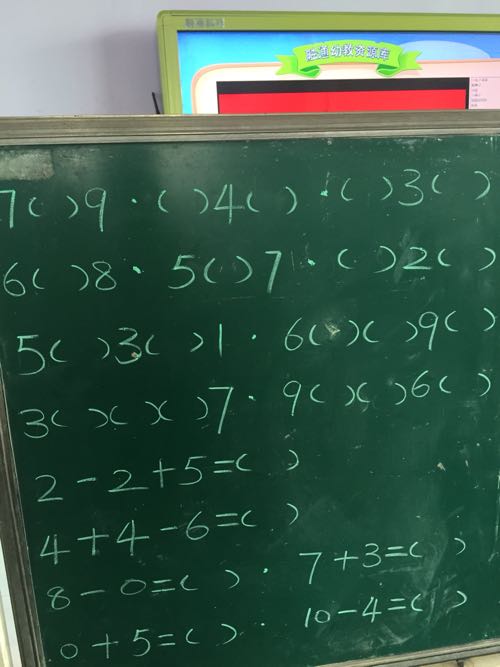 陆通幼教资源库
7( )9 · ( )4( ) · ( )3( )
6( )8 · 5( )7 · ( )2( )
5( )3( )1 · 6( )( )9( )
3( )( )( )7 · 9( )( )6( )
2-2+5=( )
4+4-6=( )
8-0=( ) · 7+3=( )
0+5=( ) · 10-4=( )